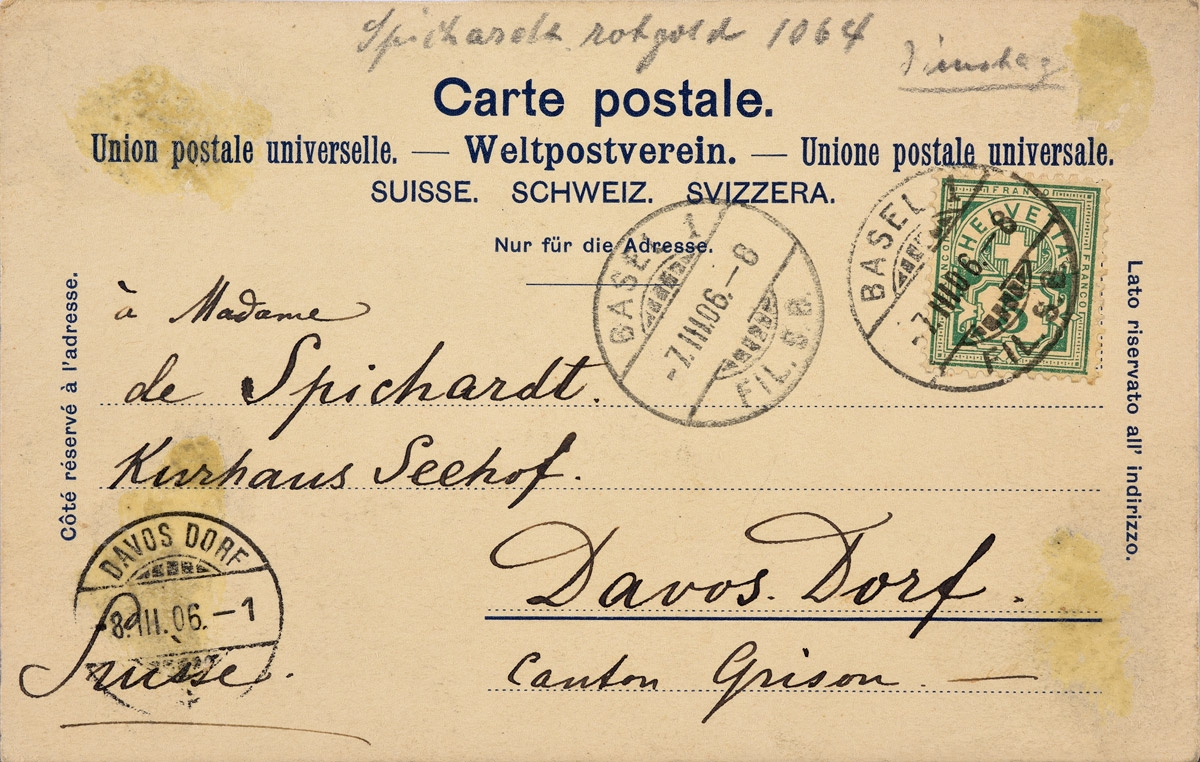 Spichardt rotgold 1064
Dinstag
Carte postale.
Union postale universelle. — Weltpostverein. — Unione postale universale.
SUISSE. SCHWEIZ. SVIZZERA.
Nur für die Adresse.
BASEL 1
-7.III.06.-8
FIL. S.B.
BASEL 1
-7.III.06.-8
FIL. S.B.
FRANCO
HELVETIA
FRANCO
Côté réservé à l'adresse.
Lato riservato all' indirizzo.
à Madame
de Spichardt.
Kurhaus Seehof.
Davos. Dorf.
Canton Grison. —
DAVOS DORF
-8.III.06.-1
Suisse.